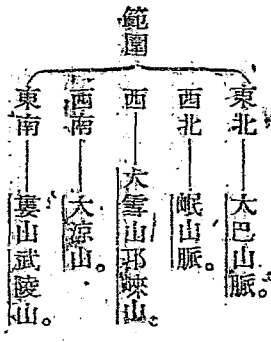 範圍
東北——大巴山脈。
西北——岷山脈。
西——大雪山邛崍山。
西南——大涼山。
東南——婁山武陵山。